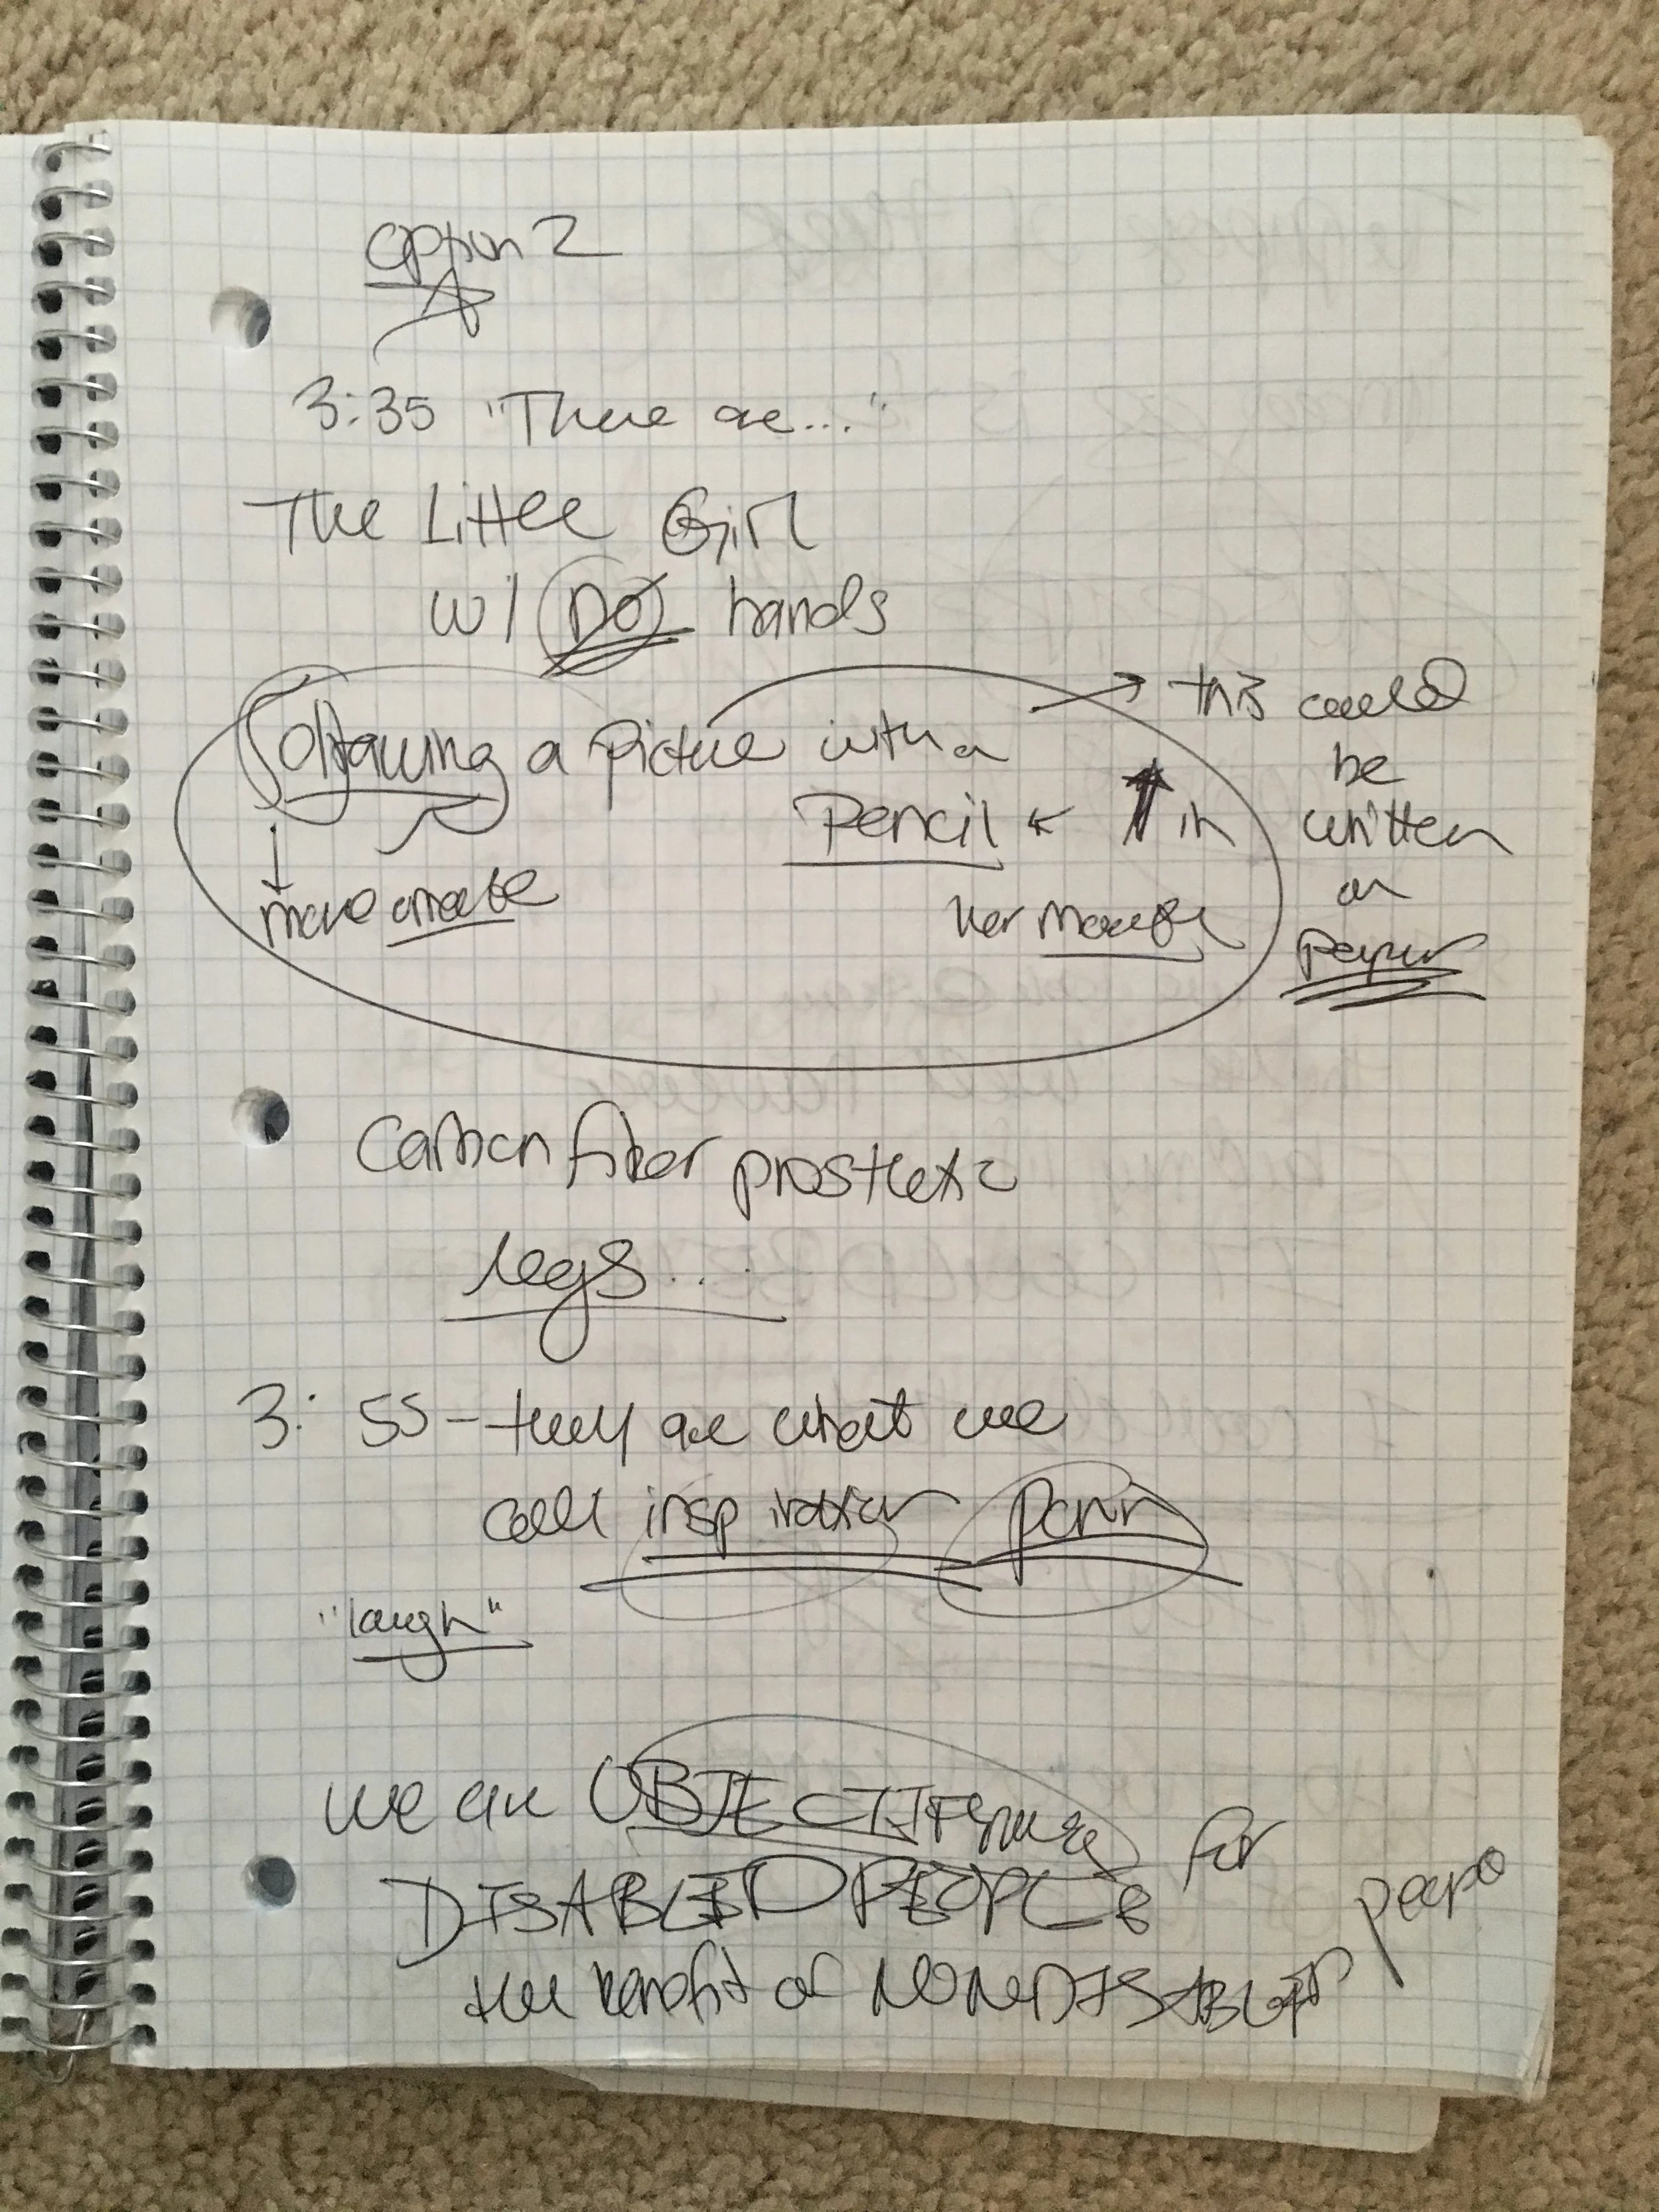 option 2
3:35 "There are..."
The Little Girl
w/ NO hands
drawing a picture with a
Pencil in
her mouth
move
this could
be
written
on
paper
Carbon fiber prosthetic
legs...
3:55 - they are what we
call inspiration porn
"laugh"
we are OBJECTIFying
DISABLED PEOPLE for
the benefit of NONDISABLED